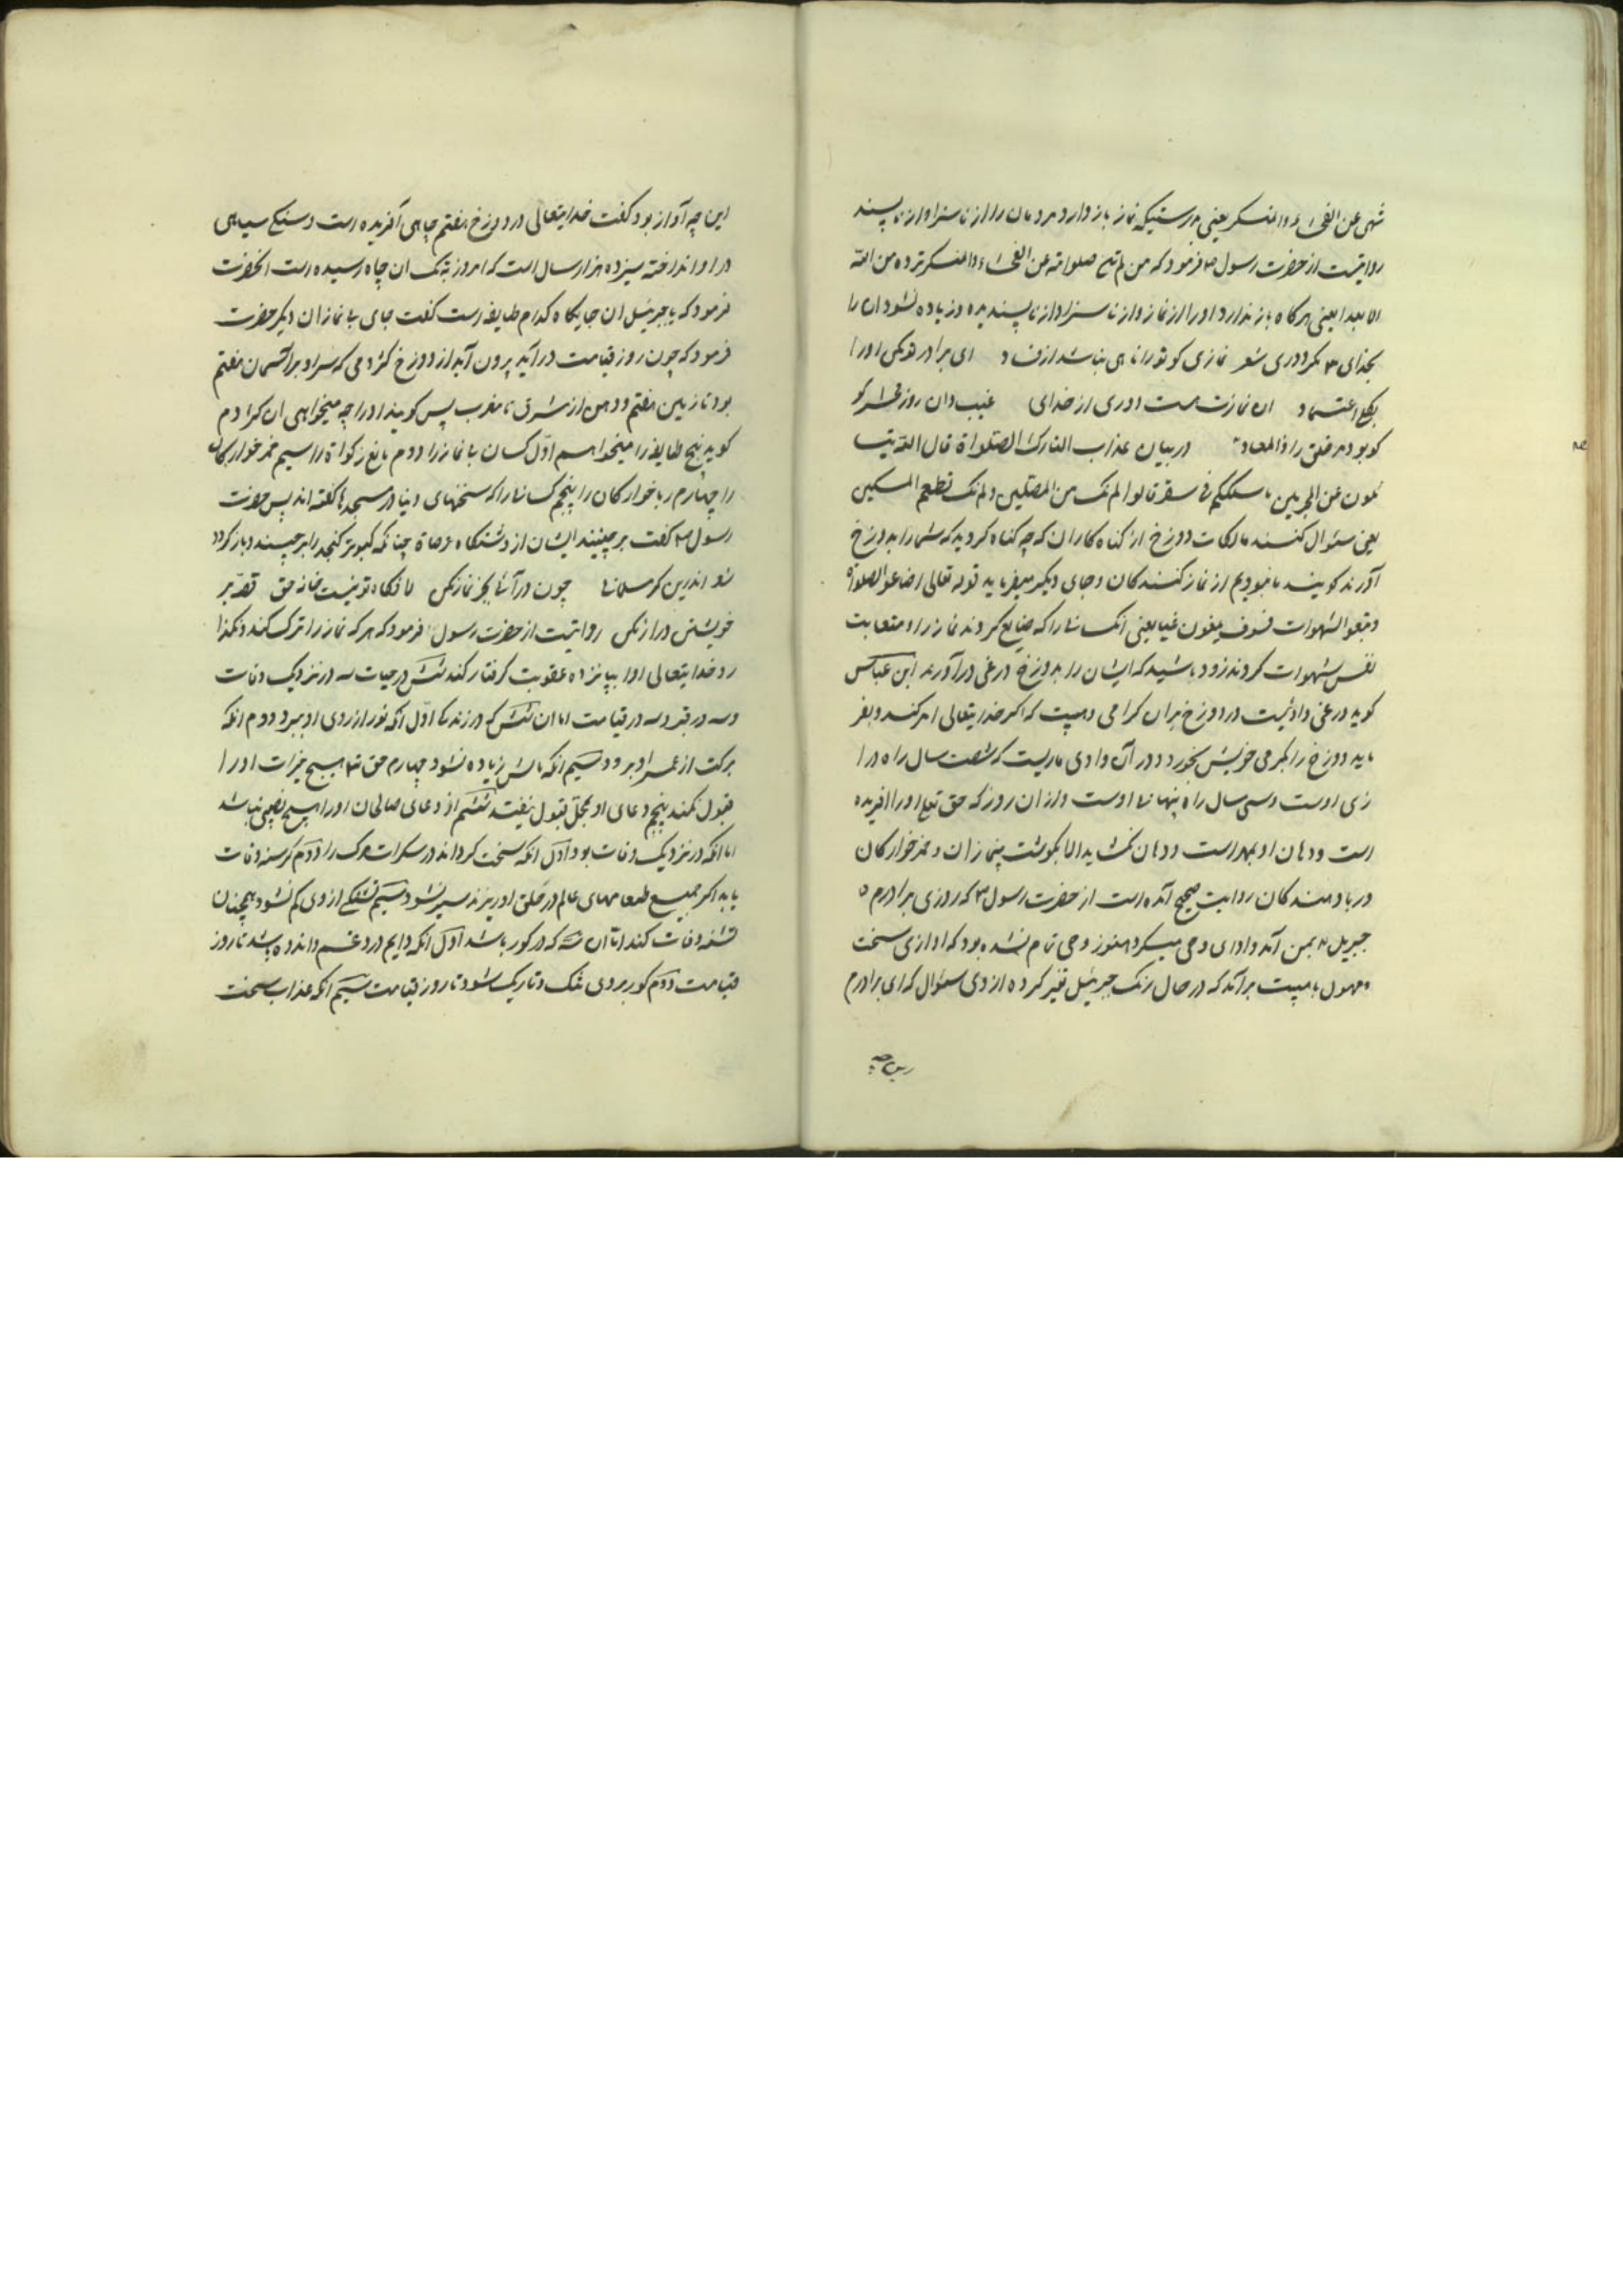 تنهی عن الفحشاء والمنکر یعنی بدرستیکه نماز باز دارد مردمان را از ناسزا و از ناپسند
روایتست از حضرت رسول فرمود که من لم تنه صلواته عن الفحشاء والمنکر لم تزده من الله
الا بعدا یعنی هرکاه باز ندارد او را از نماز و از ناسزا و از ناپسندیده و زیاده نشود ان را
بخدای مکر دوری شعر نمازی کو تورا ناهی نباشد از فساد ای برادر تو مکن او را
بکلی اعتماد ان نمازت هست دوری از خدای غیب دان روز محشر کو
کو بود مر خلق را ذالمعاد در بیان عذاب التارک الصلواة قال الله یتسا
ئلون عن المجرمین ما سلککم فی سقر قالوا لم نک من المصلین ولم نک نطعم المسکین
یعنی سئوال کنند مالکات دوزخ از کناه کاران که چه کناه کردید که شما را بدوزخ
آورند کویند ما نبودیم از نماز کنندکان و جای دیکر میفرماید قوله تعالی اضاعوا الصلواة
وتبعوا الشهوات فسوف یلقون غیا یعنی انکسانیرا که ضایع کردند نماز را و متعابت
نفس شهوات کردند زود باشید که ایشان را بدوزخ در غی در آورند ابن عباس
کوید در غی وادیست در دوزخ بران کرامی وهیبت که اکر خدایتعالی امر کند و بفر
ماید دوزخ را بکرمی خویش بخورد و در آن وادی ماریست که شصت سال راه درا
زی اوست و سی سال راه پهنای اوست و ازان روز که حق تعا او را افریده
است و دهان او بهم است و دهان نکشاید الا بکوشت بینمازان و خمرخوارکان
در باد مندکان روایت صحیح آمده است از حضرت رسول که روزی برادرم
جبریل بمن آمد و ادای وحی میکرد هنوز وحی تمام نشده بود که اوازی سخت
و مهول با هیبت برآمد که در حال رنک جبرئیل تغیر کرده از وی سئوال که ای برادرم
این چه آواز بود کفت خدایتعالی در دوزخ هفتم چاهی آفریده است و سنکی سیاهی
در او انداخته سیزده هزار سال است که امروز به تک ان چاه رسیده است انحضرت
فرمود که یا جبرئیل ان جایکاه کدام طایفه است کفت جای بی نمازان دیکر حضرت
فرمود که چون روز قیامت در آید بیرون آید از دوزخ کژدمی که سر او بر آسمان هفتم
بود تا زمین هفتم و دهن از مشرق تا مغرب پس کویند او را چه میخواهی ان کژدم
کوید پنج طایفه را میخواهم اول کسان بی نماز را دوم مانع زکواة را سیم خمر خوارکان
را چهارم رباخوارکان را پنجم کسانیرا که سخنهای دنیا در مسجدها کفته اند پس حضرت
رسول کفت برچینند ایشان از دشتکاه عرصاة چنانکه کبوتر کنجد را برچیند و باز کردد
شو اندرین کر مسلمانی چون در آئی بجز نماز مکن جایکاه تو نیست خانه حق قصه بر
خویشتن دراز مکن روایتست از حضرت رسول فرمود که هرکه نماز را ترک کند و نکذا
رد خدایتعالی او را بپانزده عقوبت کرفتار کند شش در حیات سه در نزدیک وفات
و سه در قبر و سه در قیامت اما ان شش که در زندکی اول انکه نور از روی او ببرد دوم انکه
برکت از عمر او برود سیم انکه مالش زیاده نشود چهارم حق تعا هیچ خیرات او را
قبول نکند پنجم دعای او بمحل قبول نیفتد ششم از دعای صالحان او را هیچ نصیبی نباشد
اما انکه در نزدیک وفات بود اول انکه سخت کرداند در سکرات مرک را دوم کرسنه وفات
یابد اکر جمیع طعامهای عالم در حلق او ریزند سیر نشود سیم تشنکی از وی کم نشود همچنان
تشنه وفات کند اما ان سه که در کور باشد اول انکه دایم درد و غم و اندوه باشد تا روز
قیامت دوم کور بر وی تنک و تاریک شود تا روز قیامت سیم انکه عذاب سخت